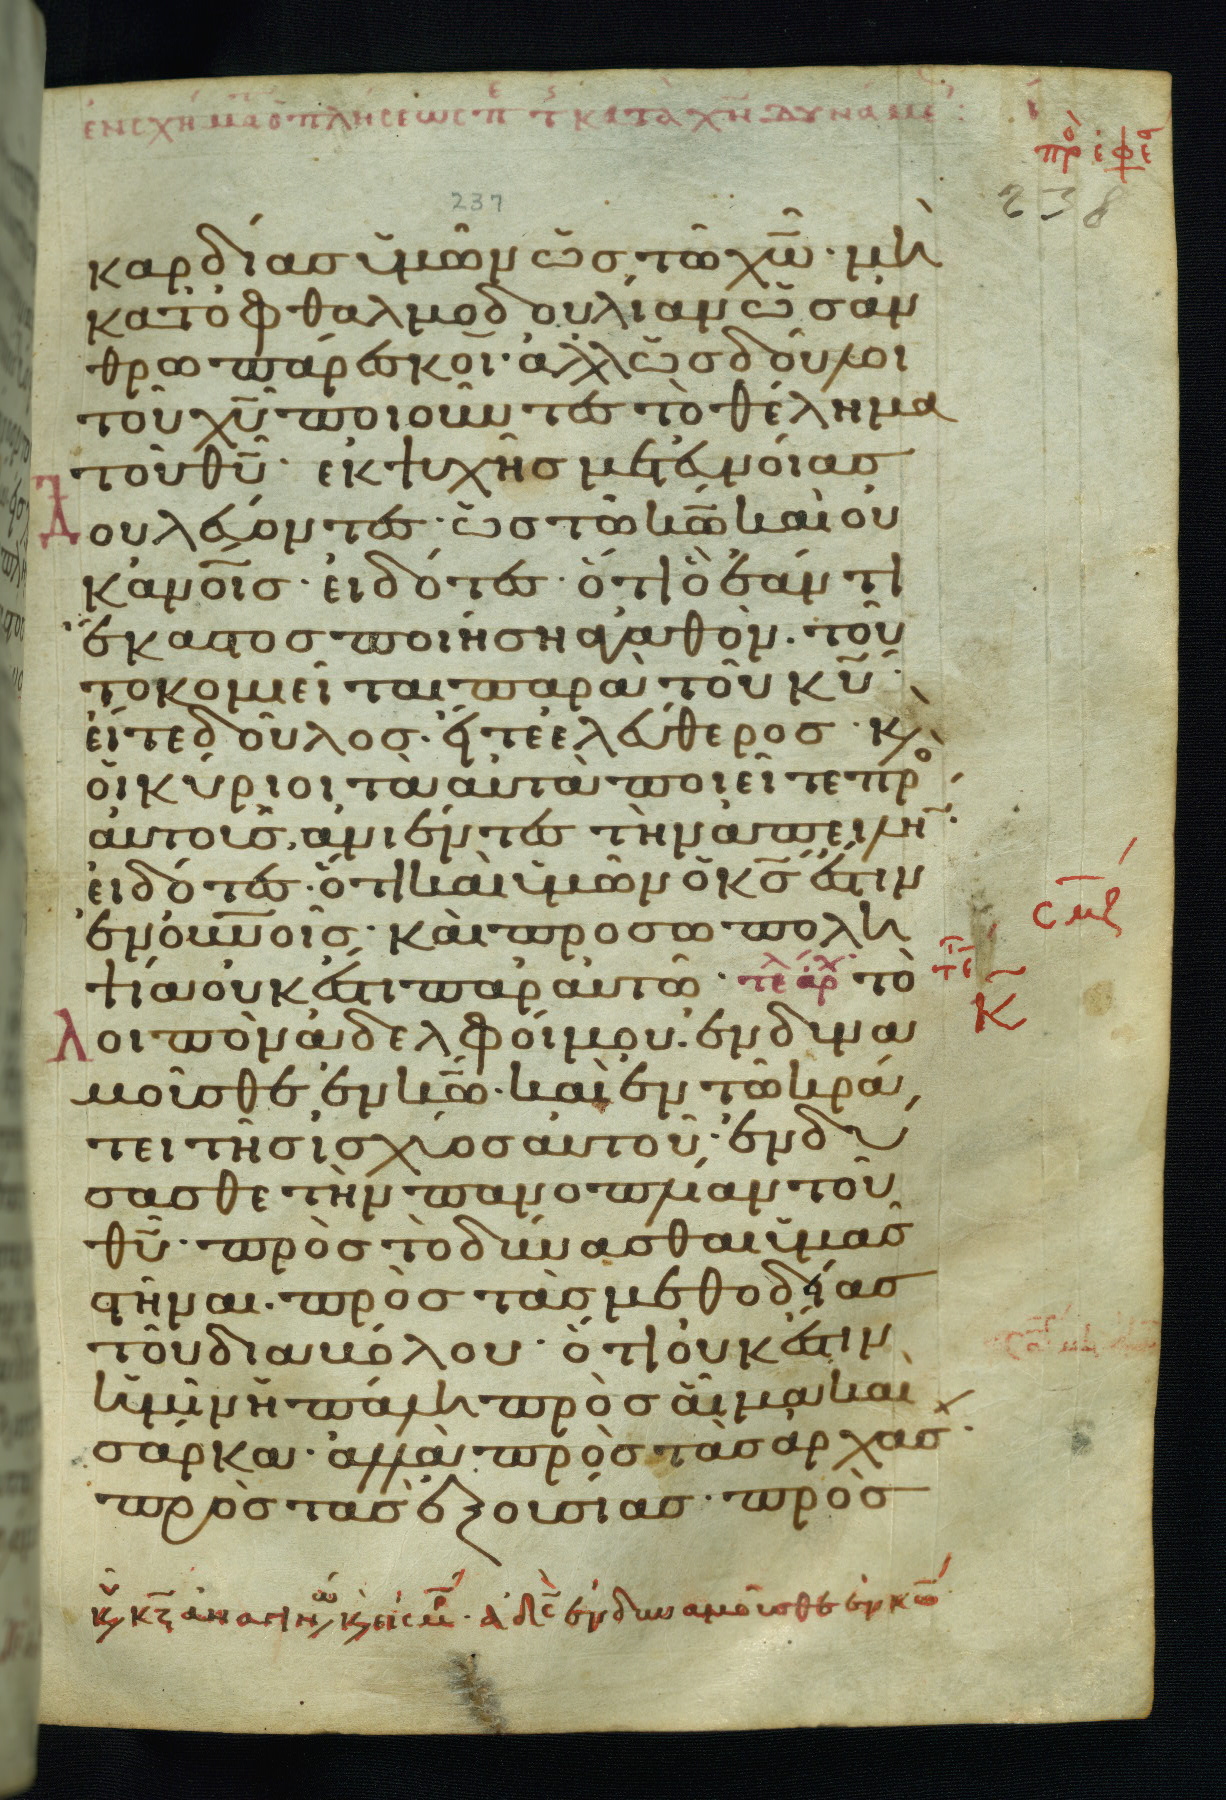 ἐν σχήμα ὁπλήσεως π τ κατὰ χν δυνάμε
πρ ἐφε
238
237
καρδίας ὑμῶν ὡς τῶ χω· μὴ
κατ ὀφθαλμοδουλίαν ὡς ἀν
θρωπάρεσκοι· ἀλλ ὡς δοῦλοι
τοῦ χυ ποιοῦντες τὸ θέλημα
τοῦ θυ· ἐκ ψυχῆς μετ ἐννοίας
δουλεύοντες· ὡς τῶ κω καὶ οὐ
κ ανοις· εἰδότες· ὅτι ὃ ἐάν τι
ἕκαστος ποιήση ἀγαθὸν. τοῦ
το κομιεῖται παρὰ τοῦ κυ·
εἴτε δοῦλος. εἴτε ἐλεύθερος· κ
οἱ κύριοι τὰ αὐτὰ ποιεῖτε πρ
αὐτοὺς, ἀνιέντες τὴν ἀπειλὴ·
εἰδότες· ὅτι καὶ ὑμῶν ὁ κς ἐστιν
ἐν οὐνοῖς· καὶ προσωποლη
ψία οὐκ ἔστι παρ αὐτῶ· τε αρχ τὸ
λοιπὸν ἀδελφοί μου. ἐνδυνα
μοῦσθε ἐν κω· καὶ ἐν τῶ κρά
τει τῆς ἰσχύος αὐτοῦ· ἐνδύ
σασθε τὴν πανοπλίαν τοῦ
θυ· πρὸς τὸ δύνασθαι ὑμᾶς
στῆναι. πρὸς τὰς μεθοδείας
τοῦ διαβόλου· ὅτι οὐκ ἔστιν
ἡμῖν ἡ πάλη πρὸς αἷμα καὶ
σάρκα· ἀλλὰ πρὸς τὰς ἀρχας·
πρὸς τας ἐξουσίας· πρὸς
κυ κζ ἀδε ἐνδυναμοῦσθε ἐν κω